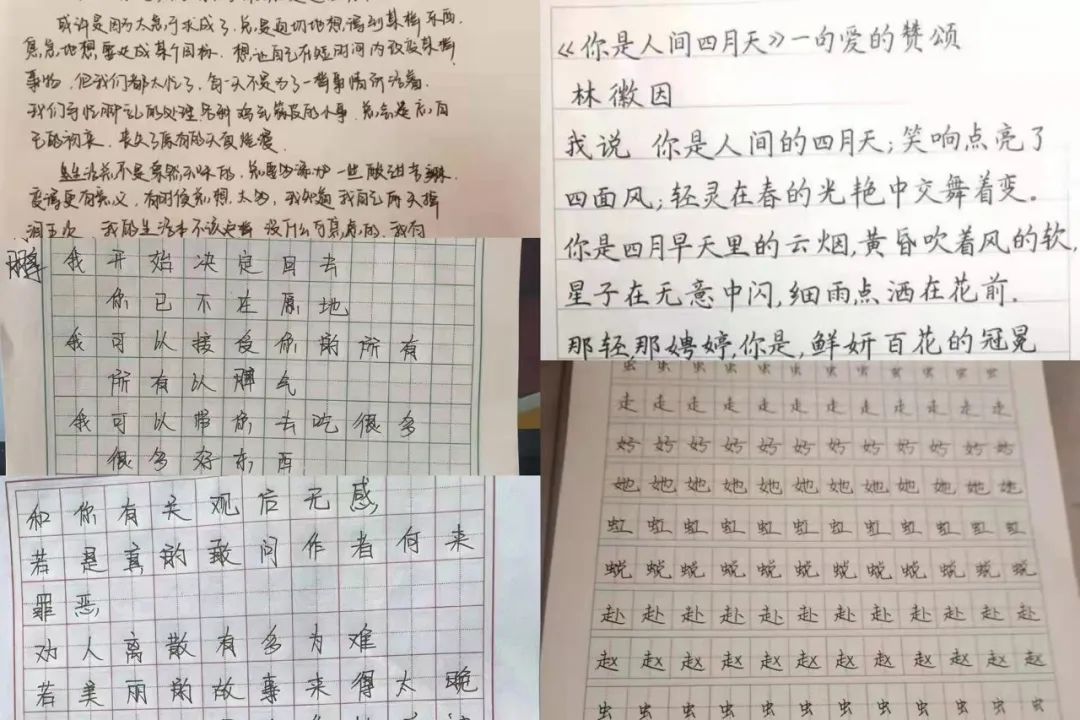 或许是因为太急于求成了,总是迫切地想得到某样东西.
急急地想要达成某个目标.想让自己在短时间内
事物,但我们都太忙了,每一天不是为了一些事情所活着.
我们的处理各种鸡毛蒜皮的小事.总会是忘自
己的初衷.丧失了原有的
生活总不是索然无味的.总要为添加一些酸甜苦辣.
变得更有意义,有时候总想太多,我知道我自己两天掉
我的生活本不该这样 没什么可焦虑的.我有
脾 我开始决定回去
你已不在原地
我可以接受你的所有
所有以脾气
我可以带你去吃很多
很多好东西
和你有关观后无感
若是真的敢问作者何来
罪恶
劝人离散有多为难
若美丽的故事来得太晚
《你是人间四月天》一句爱的赞颂
林徽因
我说 你是人间的四月天;笑响点亮了
四面风;轻灵在春的光艳中交舞着变.
你是四月早天里的云烟,黄昏吹着风的软,
星子在无意中闪,细雨点洒在花前.
那轻,那娉婷,你是,鲜妍百花的冠冕
虫虫虫虫虫虫虫虫虫虫虫
走走走走走走走走走走走
她她她她她她她她她她她
虹虹虹虹虹虹虹虹虹虹虹
蜕蜕蜕蜕蜕蜕蜕蜕蜕蜕蜕
赴赴赴赴赴赴赴赴赴赴赴
赵赵赵赵赵赵赵赵赵赵赵
虫虫虫虫虫虫虫虫虫虫虫